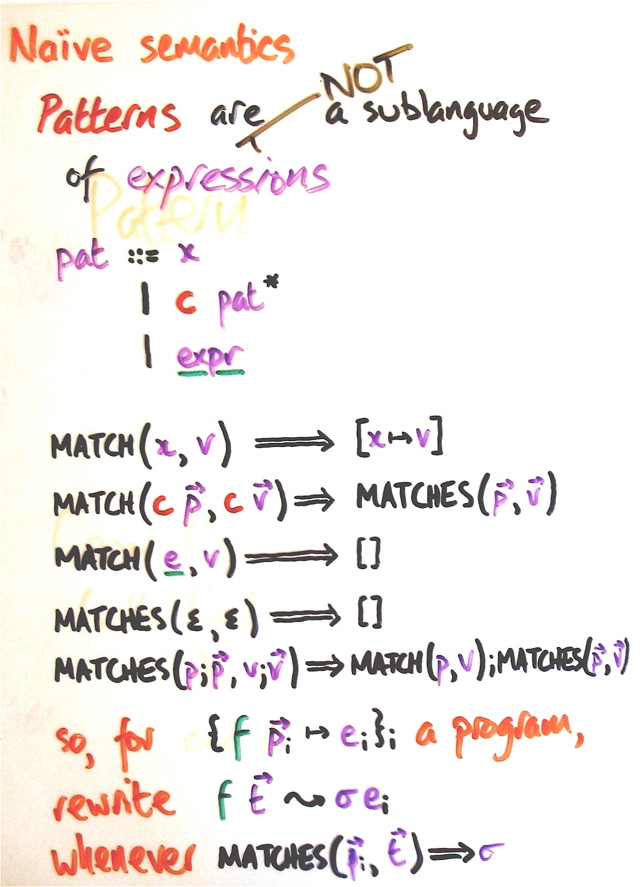 Naïve semantics
NOT
Patterns are a sublanguage
of expressions
Pattern
pat ::= x
| c pat*
| expr
MATCH(x, v) ⟹ [x↦v]
MATCH(c p⃗, c v⃗) ⟹ MATCHES(p⃗, v⃗)
MATCH(e, v) ⟹ []
MATCHES(ε, ε) ⟹ []
MATCHES(p;p⃗, v;v⃗) ⟹ MATCH(p,v);MATCHES(p⃗,v⃗)
so, for {f p⃗ᵢ ↦ eᵢ}ᵢ a program,
rewrite f t⃗ ⤳ σeᵢ
whenever MATCHES(p⃗ᵢ, t⃗) ⟹ σ